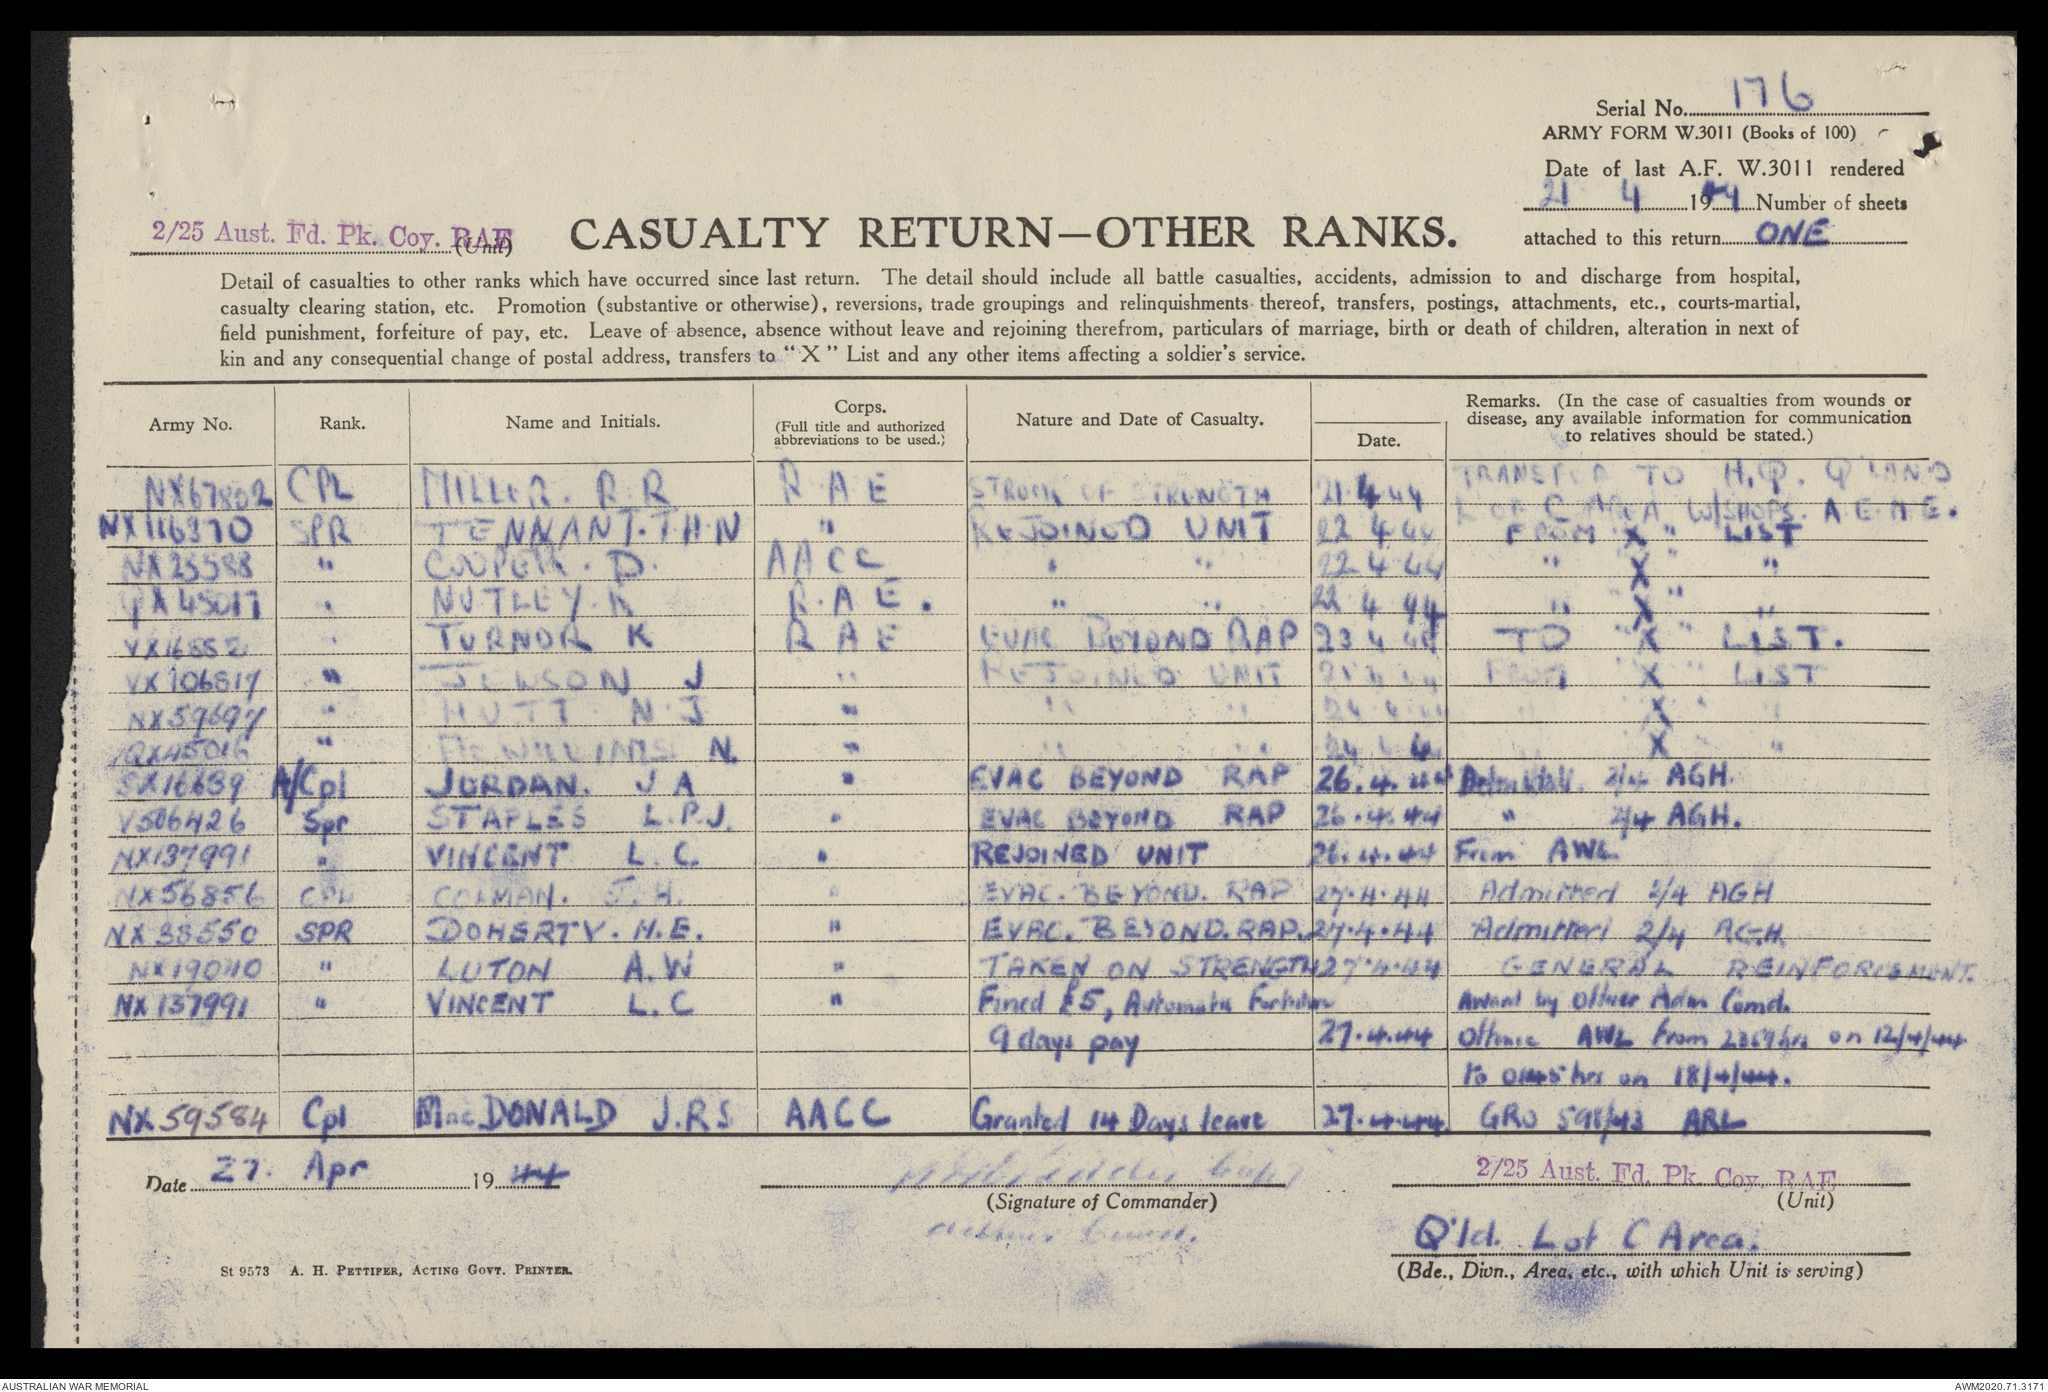 Serial No. 176
ARMY FORM W.3011 (Books of 100)
Date of last A.F. W.3011 rendered
21 4 1944 Number of sheets
attached to this return ONE
2/25 Aust. Fd. Pk. Coy. RAE (Unit)
CASUALTY RETURN—OTHER RANKS.
Detail of casualties to other ranks which have occurred since last return. The detail should include all battle casualties, accidents, admission to and discharge from hospital,
casualty clearing station, etc. Promotion (substantive or otherwise), reversions, trade groupings and relinquishments thereof, transfers, postings, attachments, etc., courts-martial,
field punishment, forfeiture of pay, etc. Leave of absence, absence without leave and rejoining therefrom, particulars of marriage, birth or death of children, alteration in next of
kin and any consequential change of postal address, transfers to "X" List and any other items affecting a soldier's service.
Army No. Rank. Name and Initials. Corps. (Full title and authorized abbreviations to be used.) Nature and Date of Casualty. Date. Remarks. (In the case of casualties from wounds or disease, any available information for communication to relatives should be stated.)
NX67802 CPL MILLER. R R R A E STRUCK OF STRENGTH 21.4.44 TRANSFER TO H.Q. Q'LAND
L OF C AREA W/SHOPS. A E M E.
NX116370 SPR TENNANT. T H N " REJOINED UNIT 22 4 44 FROM "X" LIST
NX25588 " COOPER. D. AACC " " 22 4 44 " "X" "
QX45017 " NUTLEY. K R.A E. " " 22 4 44 " "X" "
VX16552 " TURNOR K R A E EVAC BEYOND RAP 23 4 44 TO "X" LIST.
VX106817 " JEWSON J " REJOINED UNIT 4 44 FROM "X" LIST
NX59697 " HUTT N J " " " 24.4.44 " "X" "
QX45016 " McWILLIAMS N. " " " 24 4 X "
SX16639 A/Cpl JORDAN. J A " EVAC BEYOND RAP 26.4.44 Admitted 2/4 AGH.
V506426 Spr STAPLES L.P.J. " EVAC BEYOND RAP 26.4.44 " 2/4 AGH.
NX137991 " VINCENT L. C. " REJOINED UNIT 26.4.44 From AWL
NX56856 CPL COLMAN. J.H. " EVAC. BEYOND. RAP 27.4.44 Admitted 2/4 AGH
NX38550 SPR DOHERTY. H.E. " EVAC. BEYOND. RAP. 27.4.44 Admitted 2/4 AGH
NX19040 " LUTON A.W " TAKEN ON STRENGTH 27.4.44 GENERAL REINFORCEMENT.
NX137991 " VINCENT L. C " Fined £5, Automatic Forfeiture Award by Officer Adm Comd.
9 days pay 27.4.44 Offence AWL from 2359hrs on 12/4/44
to 0145 hrs on 18/4/44.
NX59584 Cpl MacDONALD J.R S AACC Granted 14 Days leave 27.4.44. GRO 598/43 ARL
Date 27. Apr 1944
(Signature of Commander)
2/25 Aust. Fd. Pk. Coy. RAE
(Unit)
Q'ld. L of C Area.
(Bde., Divn., Area, etc., with which Unit is serving)
St 9573 A. H. PETTIFER, ACTING GOVT. PRINTER.
AUSTRALIAN WAR MEMORIAL
AWM2020.71.3171